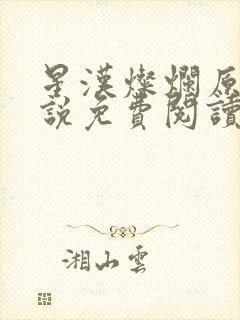 星漢燦爛原
說免費閱讀
湘山雲